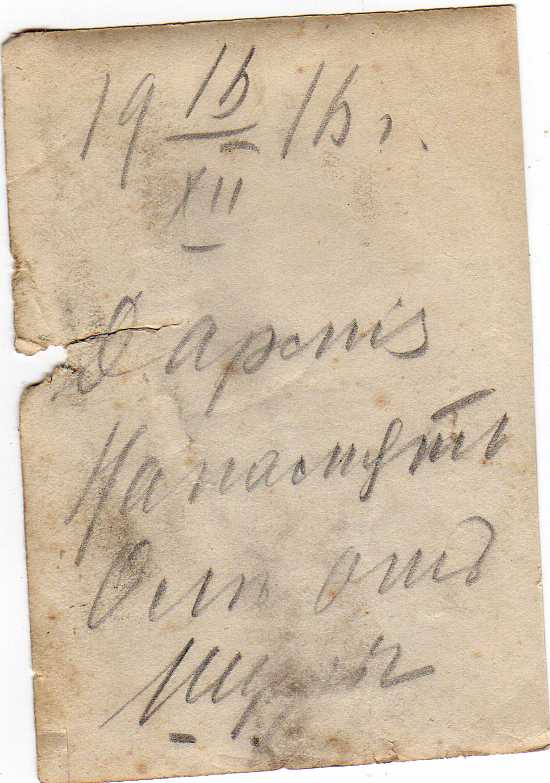 19 16/XII 16 г.
Д. Армія
На память
Оли отъ
Шуры